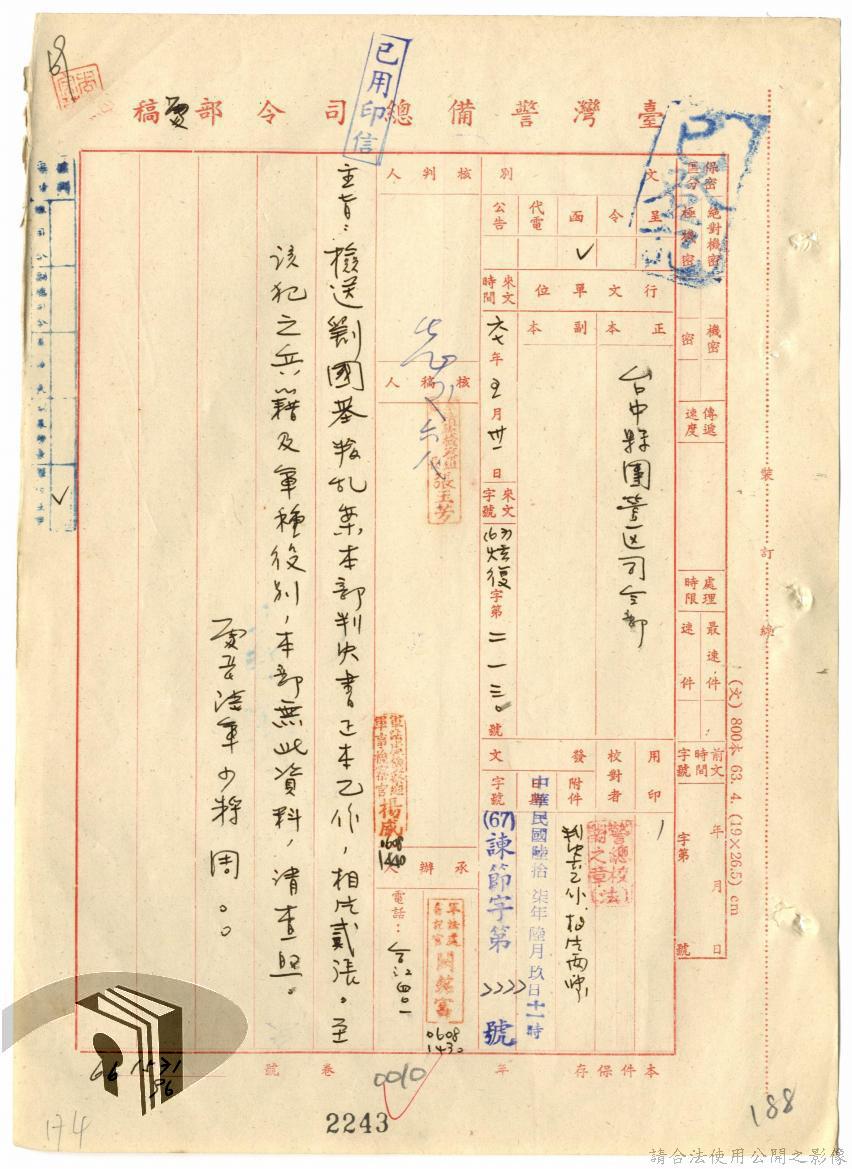 臺灣警備總司令部稿
已用印信
保密區分
絕對機密
極機密
機密
密
傳遞速度
處理時限
最速件
速件
前文時間字號
年 月 日
字第 號
文別
呈
令
函
✓
代電
公告
行文單位
正本
台中縣團管區司令部
副本
來文時間
六七年五月卅一日
來文字號
(67)炫復字第二一三〇號
用印
校對者
警總校法
發文
附件
判決書乙份、相片兩張
日期
中華民國陸拾柒年陸月玖日十一時
字號
(67)諫節字第 2222 號
核判人
核稿人
張玉芳
軍事檢察官 楊威
0608
1440
承辦人
軍法處
書記官
0608
1430
電話:
主旨:檢送劉國基叛乱案本部判決書正本乙份,相片貳張。至
該犯之兵籍及軍種役別,本部無此資料,請查照。
處長陸軍少將周○○
本件保存 年
卷 號
0010
裝
訂
線
(文) 800本 63. 4. (19×26.5) cm
66 1531
86
2243
174
188
請合法使用公開之影像